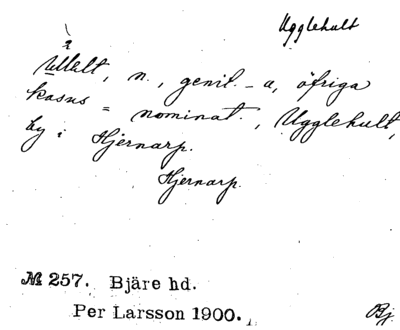 Ugglehult
Ullelt, n., genit. -a, öfriga
kasus = nominat., Ugglehult,
by i Hjernarp.
Hjernarp.
№ 257. Bjäre hd.
Per Larsson 1900.
Bj